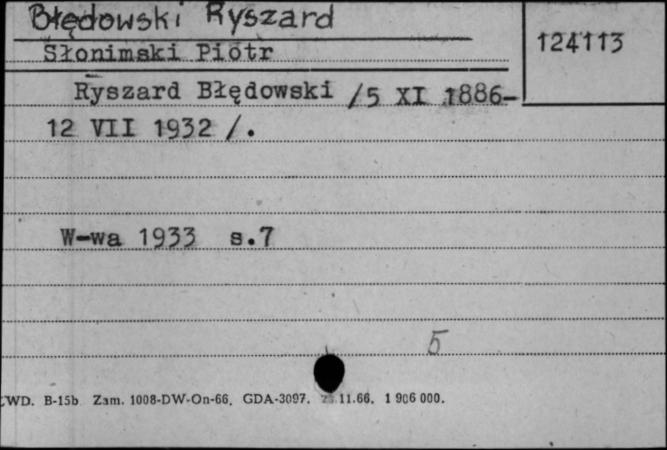 Błędowski Ryszard
124113
Słonimski Piotr
Ryszard Błędowski /5 XI 1886-
12 VII 1932 /.
W-wa 1933 s.7
5
WD. B-15b Zam. 1008-DW-On-66. GDA-3097. 11.66. 1 906 000.